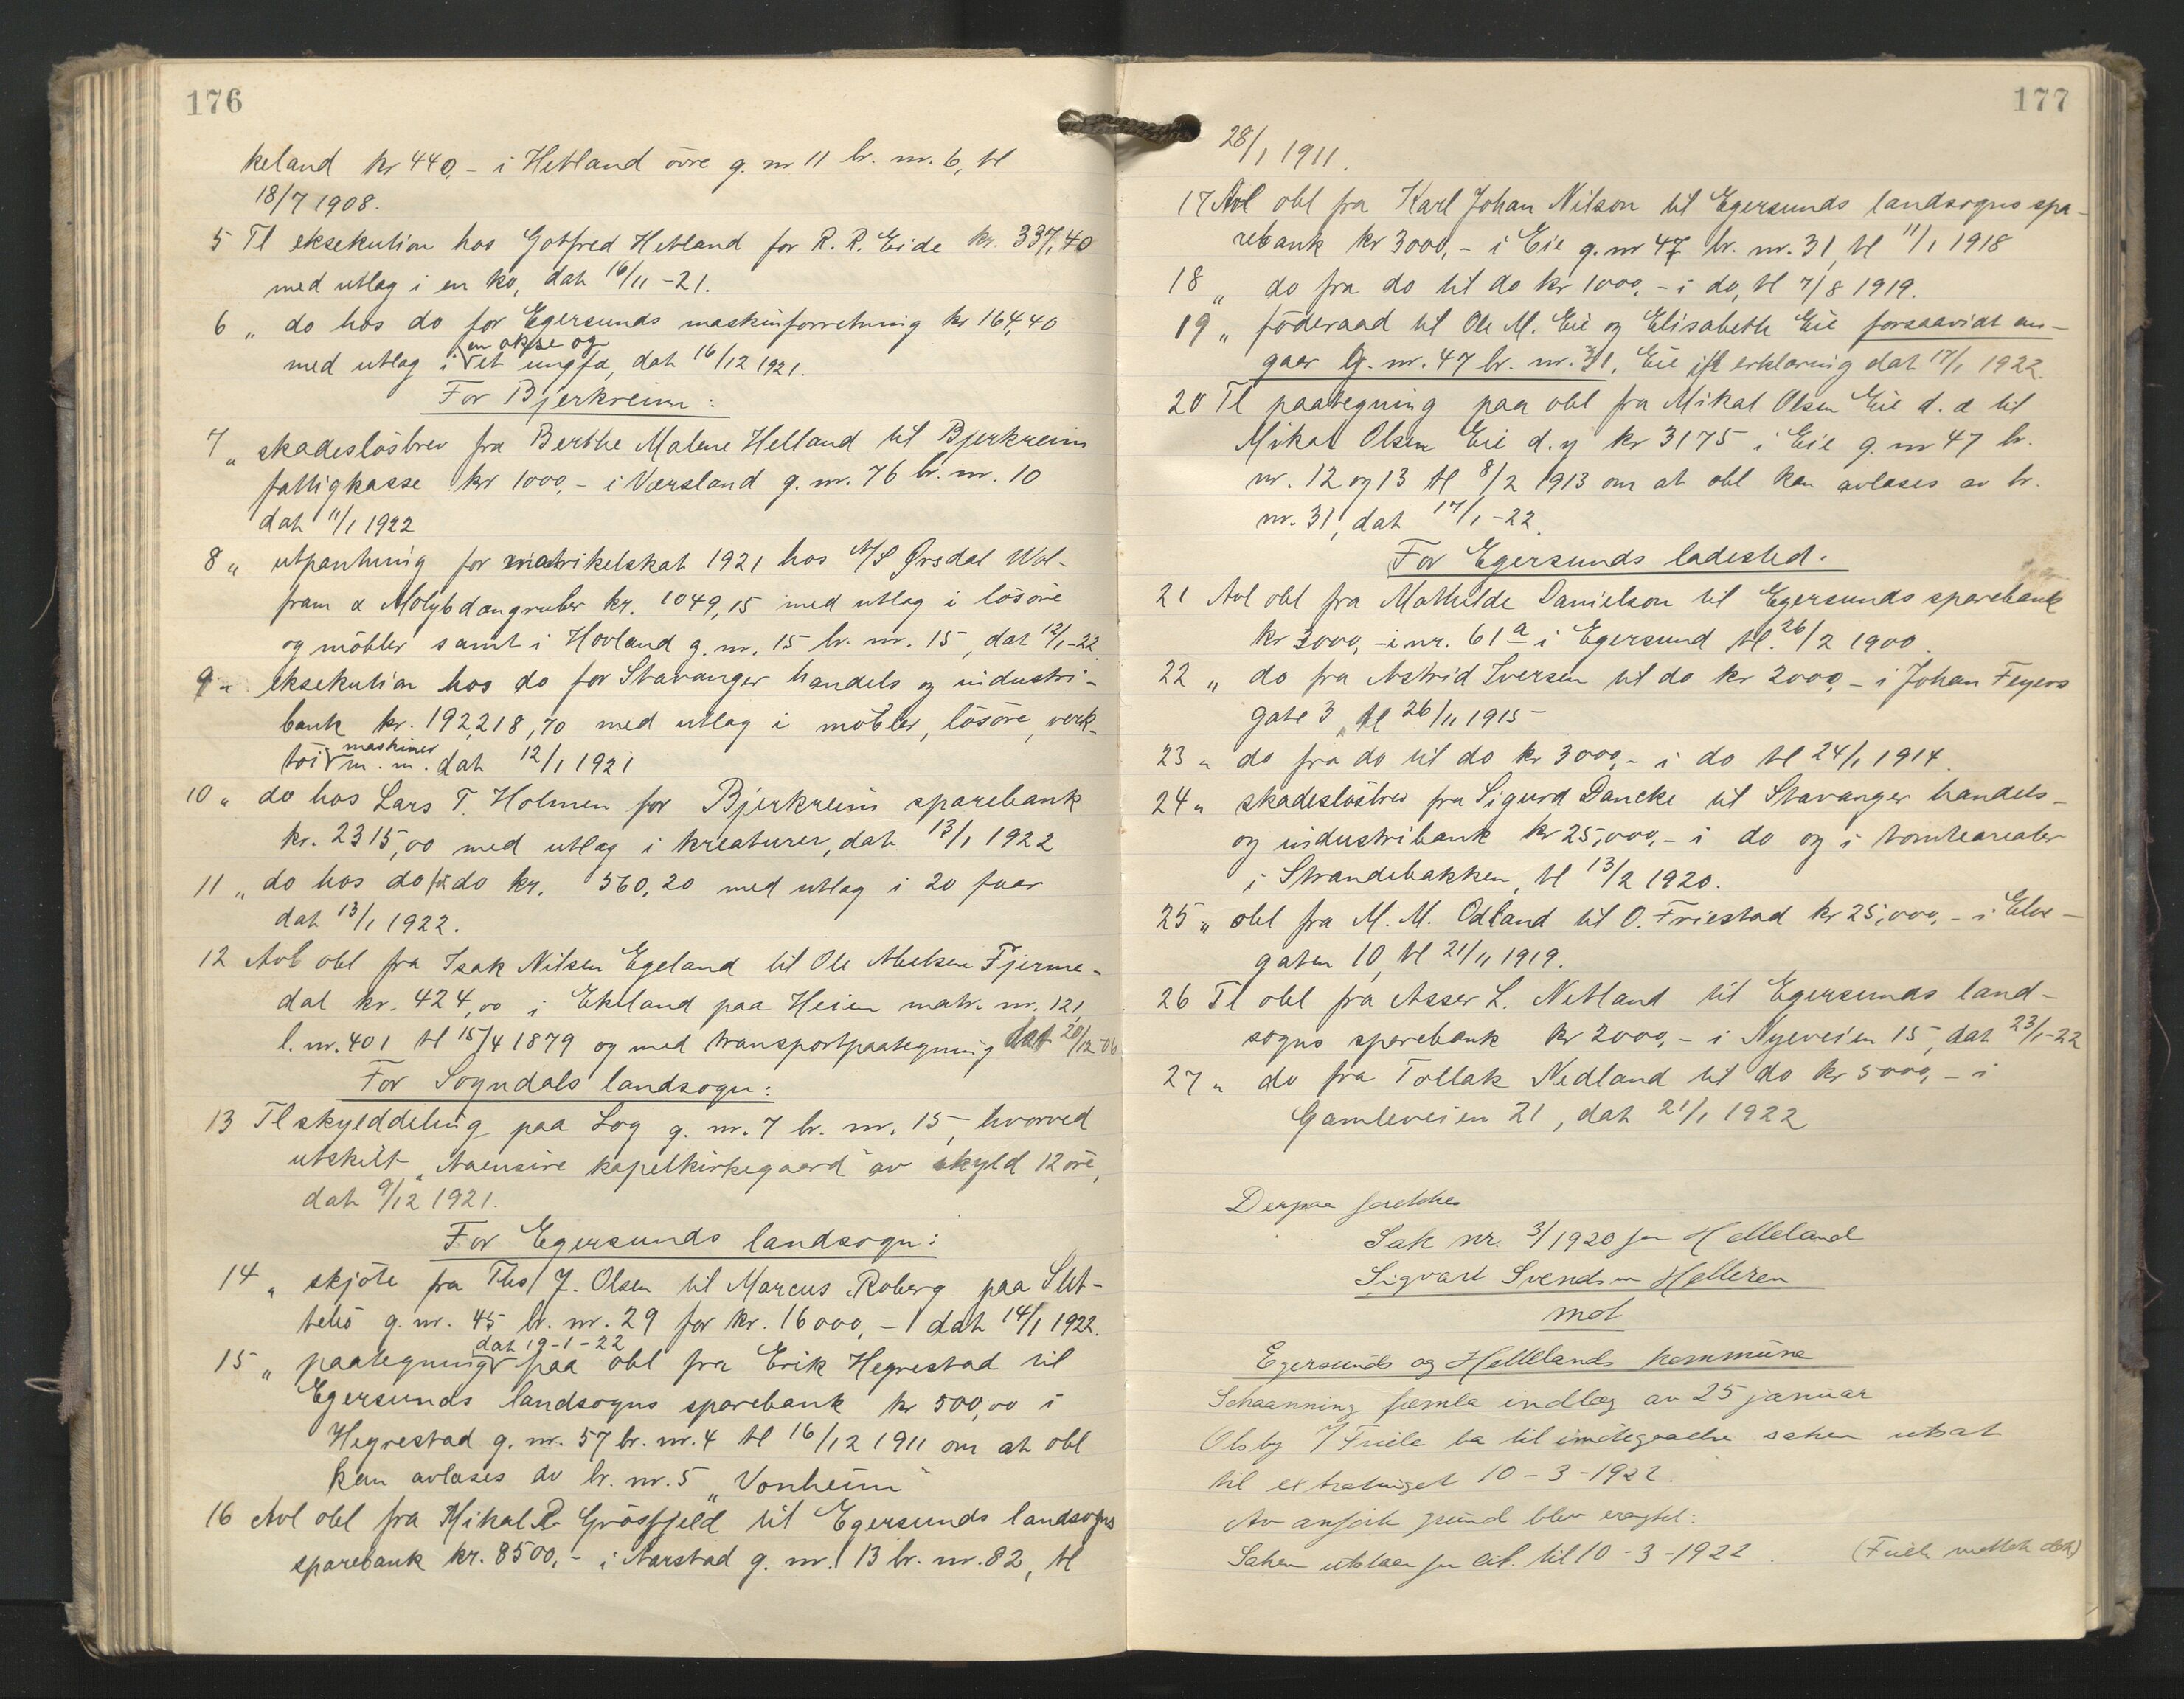 176
keland kr 440,- i Hetland övre g. nr 11 br. nr. 6, tl
18/7 1908.
5 Tl eksekution hos Gotfred Hetland for R. R. Eide kr. 337,40
med utlæg i en ko, dat 16/11 -21.
6 " do hos do for Egersunds maskinforretning kr 164,40
en okse og
med utlæg i et ungfæ, dat 16/12 1921.
For Bjerkreim:
7 " skadeslösbrev fra Berthe Malene Helland til Bjerkreim
fattigkasse kr 1000,- i Versland g. nr. 76 br. nr. 10
dat 11/1 1922
8 " utpantning for matrikelskat 1921 hos A/S Ørsdal Wol-
fram & Molybdængruber kr. 1049,15 med utlæg i lösöre
og möbler samt i Hovland g. nr. 15 br. nr. 15, dat 12/1-22
9 " eksekution hos do for Stavanger handels og industri-
bank kr. 192,218,70 med utlæg i möbler, lösöre, verk-
maskiner
töi m. m. dat 12/1 1921
10 " do hos Lars T. Holmen for Bjerkreim sparebank
kr. 2315,00 med utlæg i kreaturer, dat 13/1 1922
11 " do hos do for do kr. 560,20 med utlæg i 20 faar
dat 13/1 1922.
12 Avl obl fra Isak Nilsen Egeland til Ole Abelsen Fjerme-
dal kr. 424,00 i Ekeland paa Heien matr. nr. 121
l. nr. 401 tl 15/4 1879 og med transportpaategning dat 20/12-06
For Sogndals landsogn:
13 Tl skylddeling paa Log g. nr. 7 br. nr. 15, hvorved
utskilt „Aaensire kapelkirkegaard" av skyld 12 öre,
dat 9/12 1921.
For Egersunds landsogn:
14 " skjöte fra Ths J. Olsen til Marcus Roberg paa Slet-
tebö g. nr. 45 br. nr. 29 for kr. 16000,- dat 14/1 1922.
dat 19-1-22
15 " paategning paa obl fra Erik Hegrestad til
Egersunds landsogns sparebank kr 500,00 i
Hegrestad g. nr. 57 br. nr. 4 tl 16/12 1911 om at obl
kan avlöses av br. nr. 5 „Vonheim"
16 Avl obl fra Mikal R Grösfjeld til Egersunds landsogns
sparebank kr. 8500,- i Aarstad g. nr. 13 br. nr. 82, tl
177
28/1 1911.
17 Avl obl fra Karl Johan Nilson til Egersunds landsogns spa-
rebank kr 3000,- i Eie g. nr 47 br. nr. 31, tl 11/1 1918
18 " do fra do til do kr 1000,- i do, tl 7/8 1919.
19 " föderaad til Ole M. Eie og Elisabeth Eie forsaavidt an-
gaar g. nr. 47 br. nr. 31, Eie ifl erklæring dat 17/1 1922.
20 Tl paategning paa obl fra Mikal Olsen Eie d. æ til
Mikal Olsen Eie d. y kr 3175 i Eie g. nr 47 br.
nr. 12 og 13 tl 8/2 1913 om at obl kan avlöses av br.
nr. 31, dat 17/1-22.
For Egersunds ladested.
21 Avl obl fra Mathilde Danielson til Egersunds sparebank
kr 3000,- i nr. 61a i Egersund tl. 26/2 1900.
22 " do fra Astrid Iversen til do kr 2000,- i Johan Feyers
gate 3, tl 26/11 1915
23 " do fra do til do kr 3000,- i do tl 24/1 1914.
24 " skadeslösbrev fra Sigurd Dancke til Stavanger handels-
og industribank kr 25,000,- i do og i tomtearealer
i Strandebakken, tl 13/2 1920.
25 " obl fra M. M. Odland til O. Friestad kr 25,000,- i Elve-
gaten 10, tl 21/11 1919.
26 Tl obl fra Asser L. Netland til Egersunds land-
sogns sparebank kr 2000,- i Nyeveien 15, dat 23/1-22
27 " do fra Tollak Nedland til do kr 5000,- i
Gamleveien 21, dat 21/1 1922
Derpaa foretokes
Sak nr. 3/1920 fra Helleland
Sigvart Svendsen Helleren
mot
Egersunds og Hellelands kommune
Schaanning fremla indlæg av 25 januar
Olsby f/Friele ba til imötegaaelse saken utsat
til extratinget 10-3-1922.
Av anförte grund blev eragtet:
Saken utstaar til 10-3-1922.